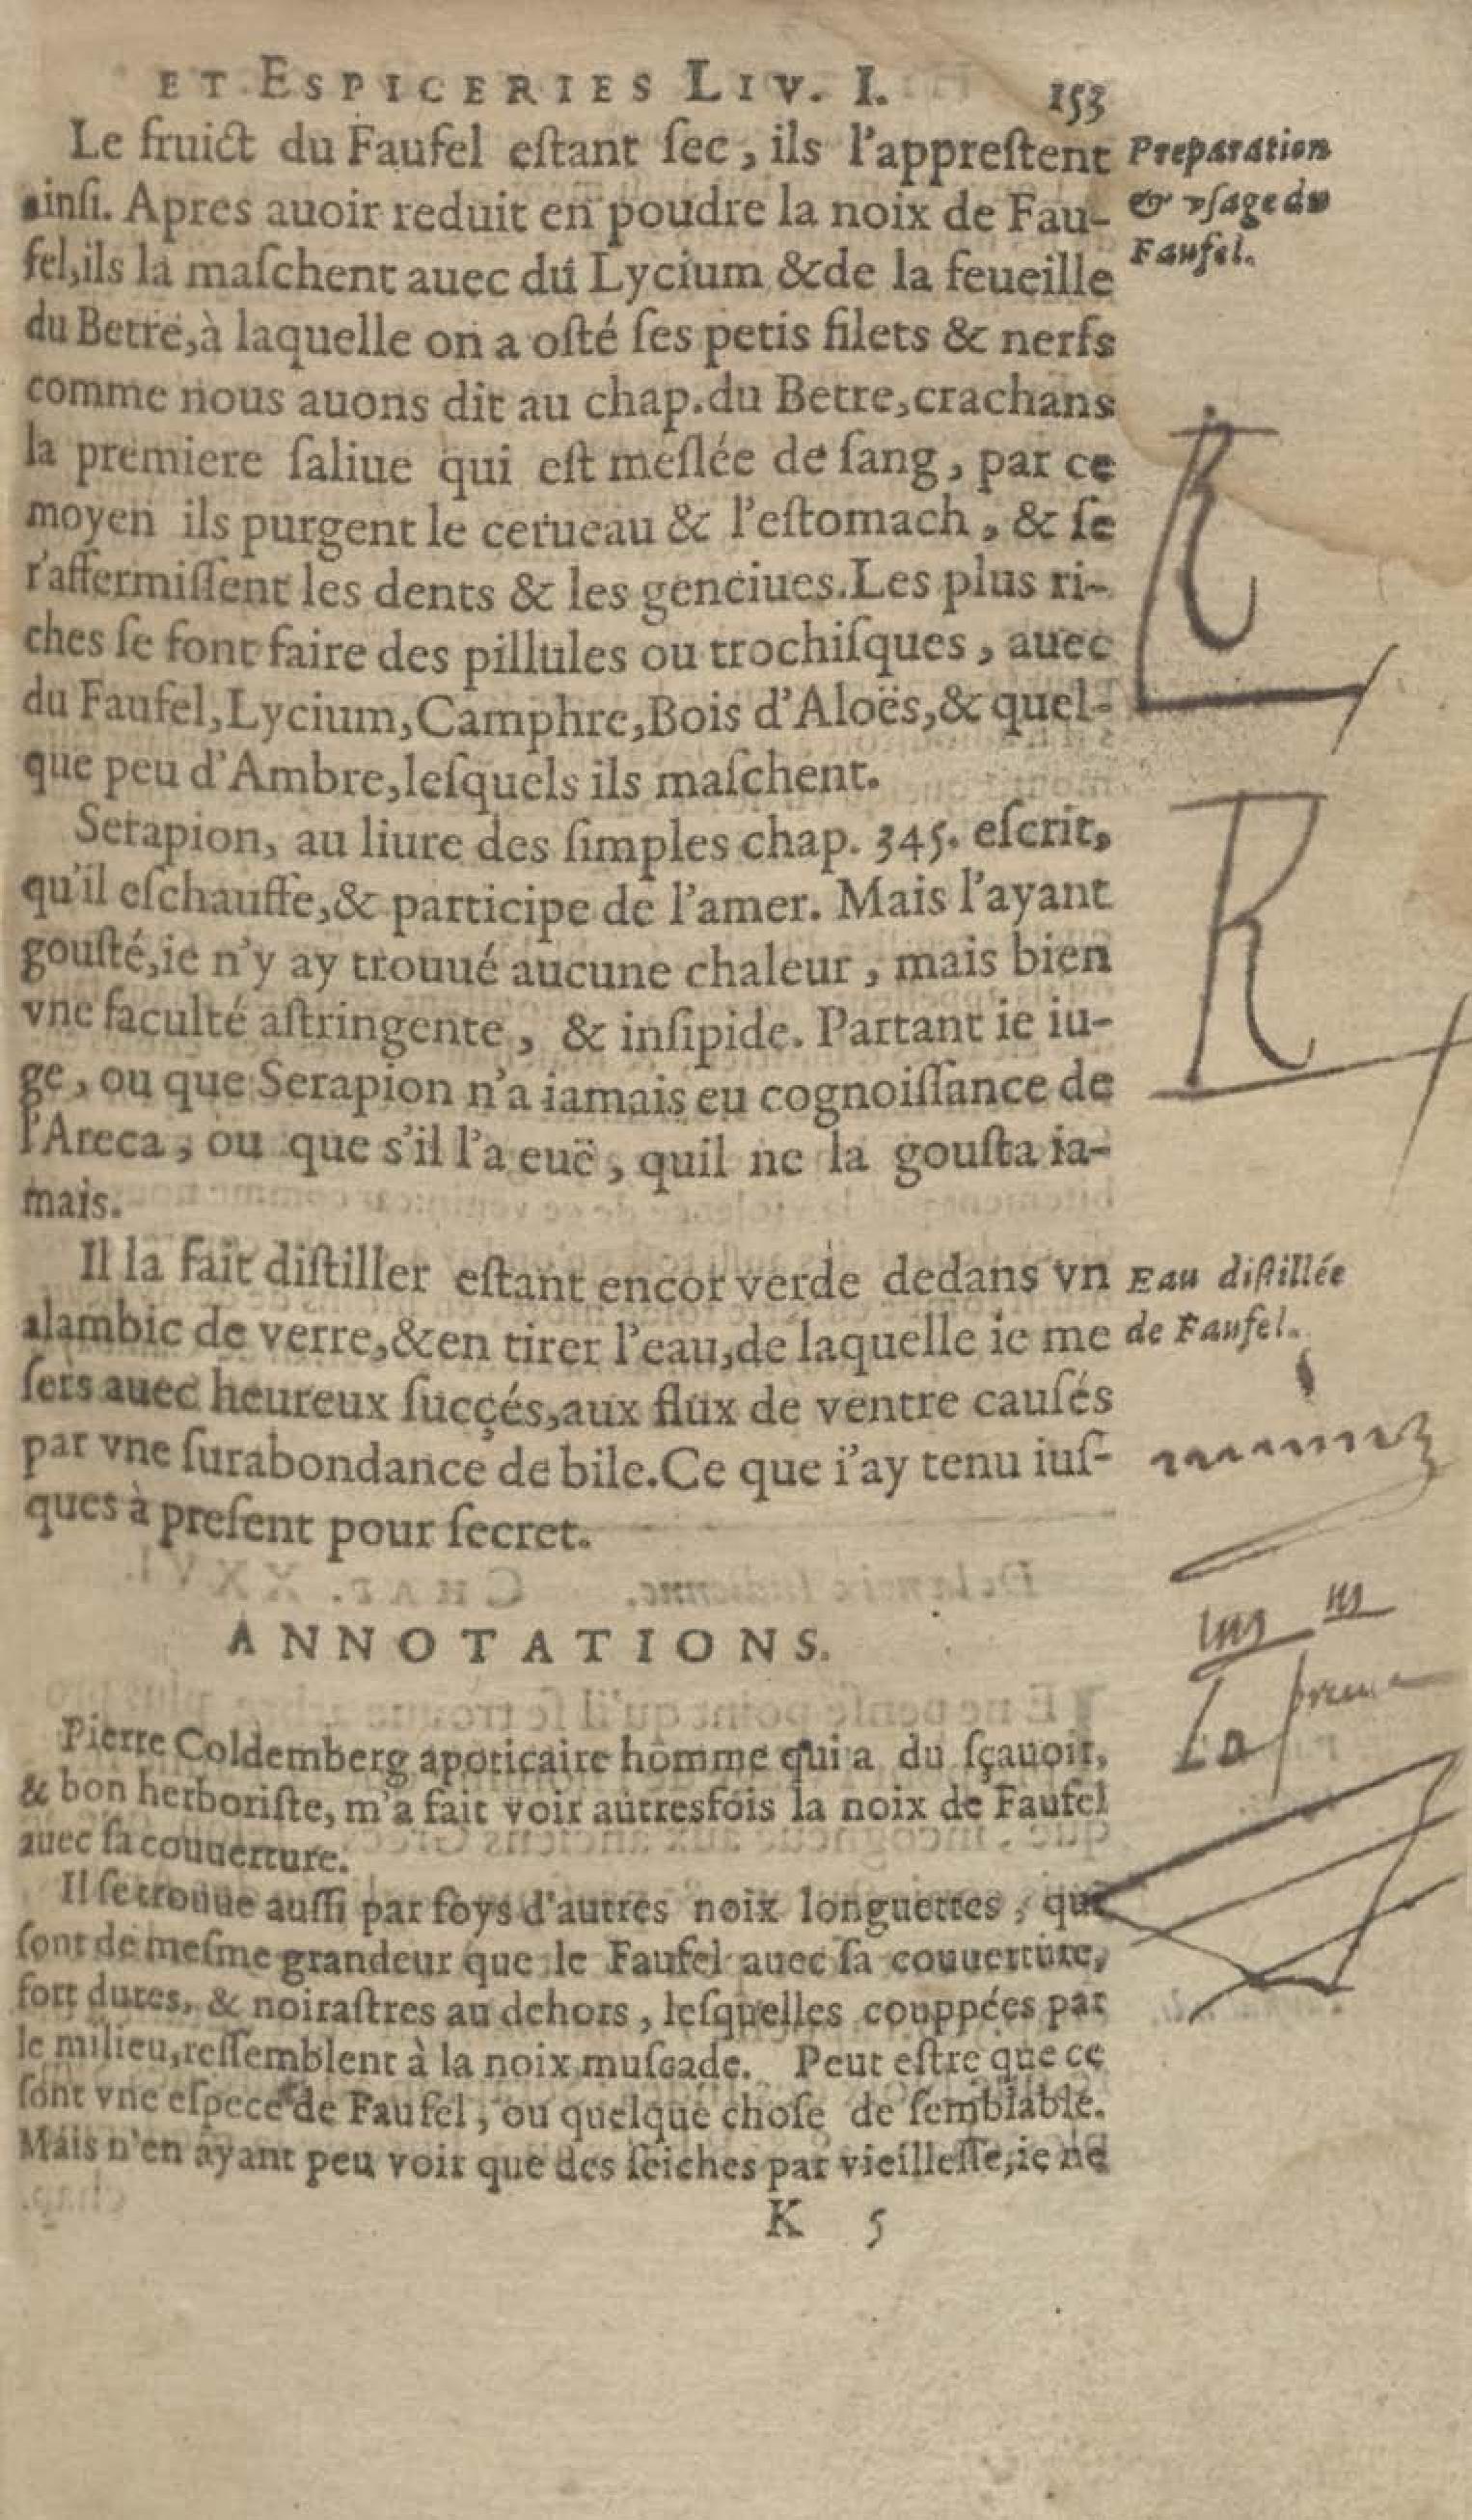 ET ESPICERIES LIV. I. 153
Le fruict du Faufel eſtant ſec, ils l'appreſtent
ainſi. Apres auoir reduit en poudre la noix de Fau-
fel, ils la maſchent auec du Lycium & de la feueille
du Betre, à laquelle on a oſté ſes petis filets & nerfs
comme nous auons dit au chap. du Betre, crachans
la premiere ſaliue qui eſt meſlée de ſang, par ce
moyen ils purgent le cerueau & l'eſtomach, & ſe
r'affermiſſent les dents & les genciues. Les plus ri-
ches ſe font faire des pillules ou trochiſques, auec
du Faufel, Lycium, Camphre, Bois d'Aloës, & quel-
que peu d'Ambre, leſquels ils maſchent.
Preparation
& vſage du
Faufel.
Serapion, au liure des ſimples chap. 345. eſcrit,
qu'il eſchauffe, & participe de l'amer. Mais l'ayant
gouſté, ie n'y ay trouué aucune chaleur, mais bien
vne faculté aſtringente, & inſipide. Partant ie iu-
ge, ou que Serapion n'a iamais eu cognoiſſance de
l'Areca, ou que s'il l'a euë, quil ne la gouſta ia-
mais.
R
Il la fait diſtiller eſtant encor verde dedans vn
alambic de verre, & en tirer l'eau, de laquelle ie me
ſers auec heureux ſucçés, aux flux de ventre cauſés
par vne ſurabondance de bile. Ce que i'ay tenu iuſ-
ques à preſent pour ſecret.
Eau diſtillée
de Faufel.
ANNOTATIONS.
Pierre Coldemberg apoticaire homme qui a du ſçauoir,
& bon herboriſte, m'a fait voir autresfois la noix de Faufel
auec ſa couuerture.
Il ſe trouue auſſi par foys d'autres noix longuettes, qui
ſont de meſme grandeur que le Faufel auec ſa couuerture,
fort dures, & noiraſtres au dehors, leſquelles couppées par
le milieu, reſſemblent à la noix muſcade. Peut eſtre que ce
ſont vne eſpece de Faufel, ou quelque choſe de ſemblable.
Mais n'en ayant peu voir que des ſeiches par vieilleſſe, ie ne
La
K 5